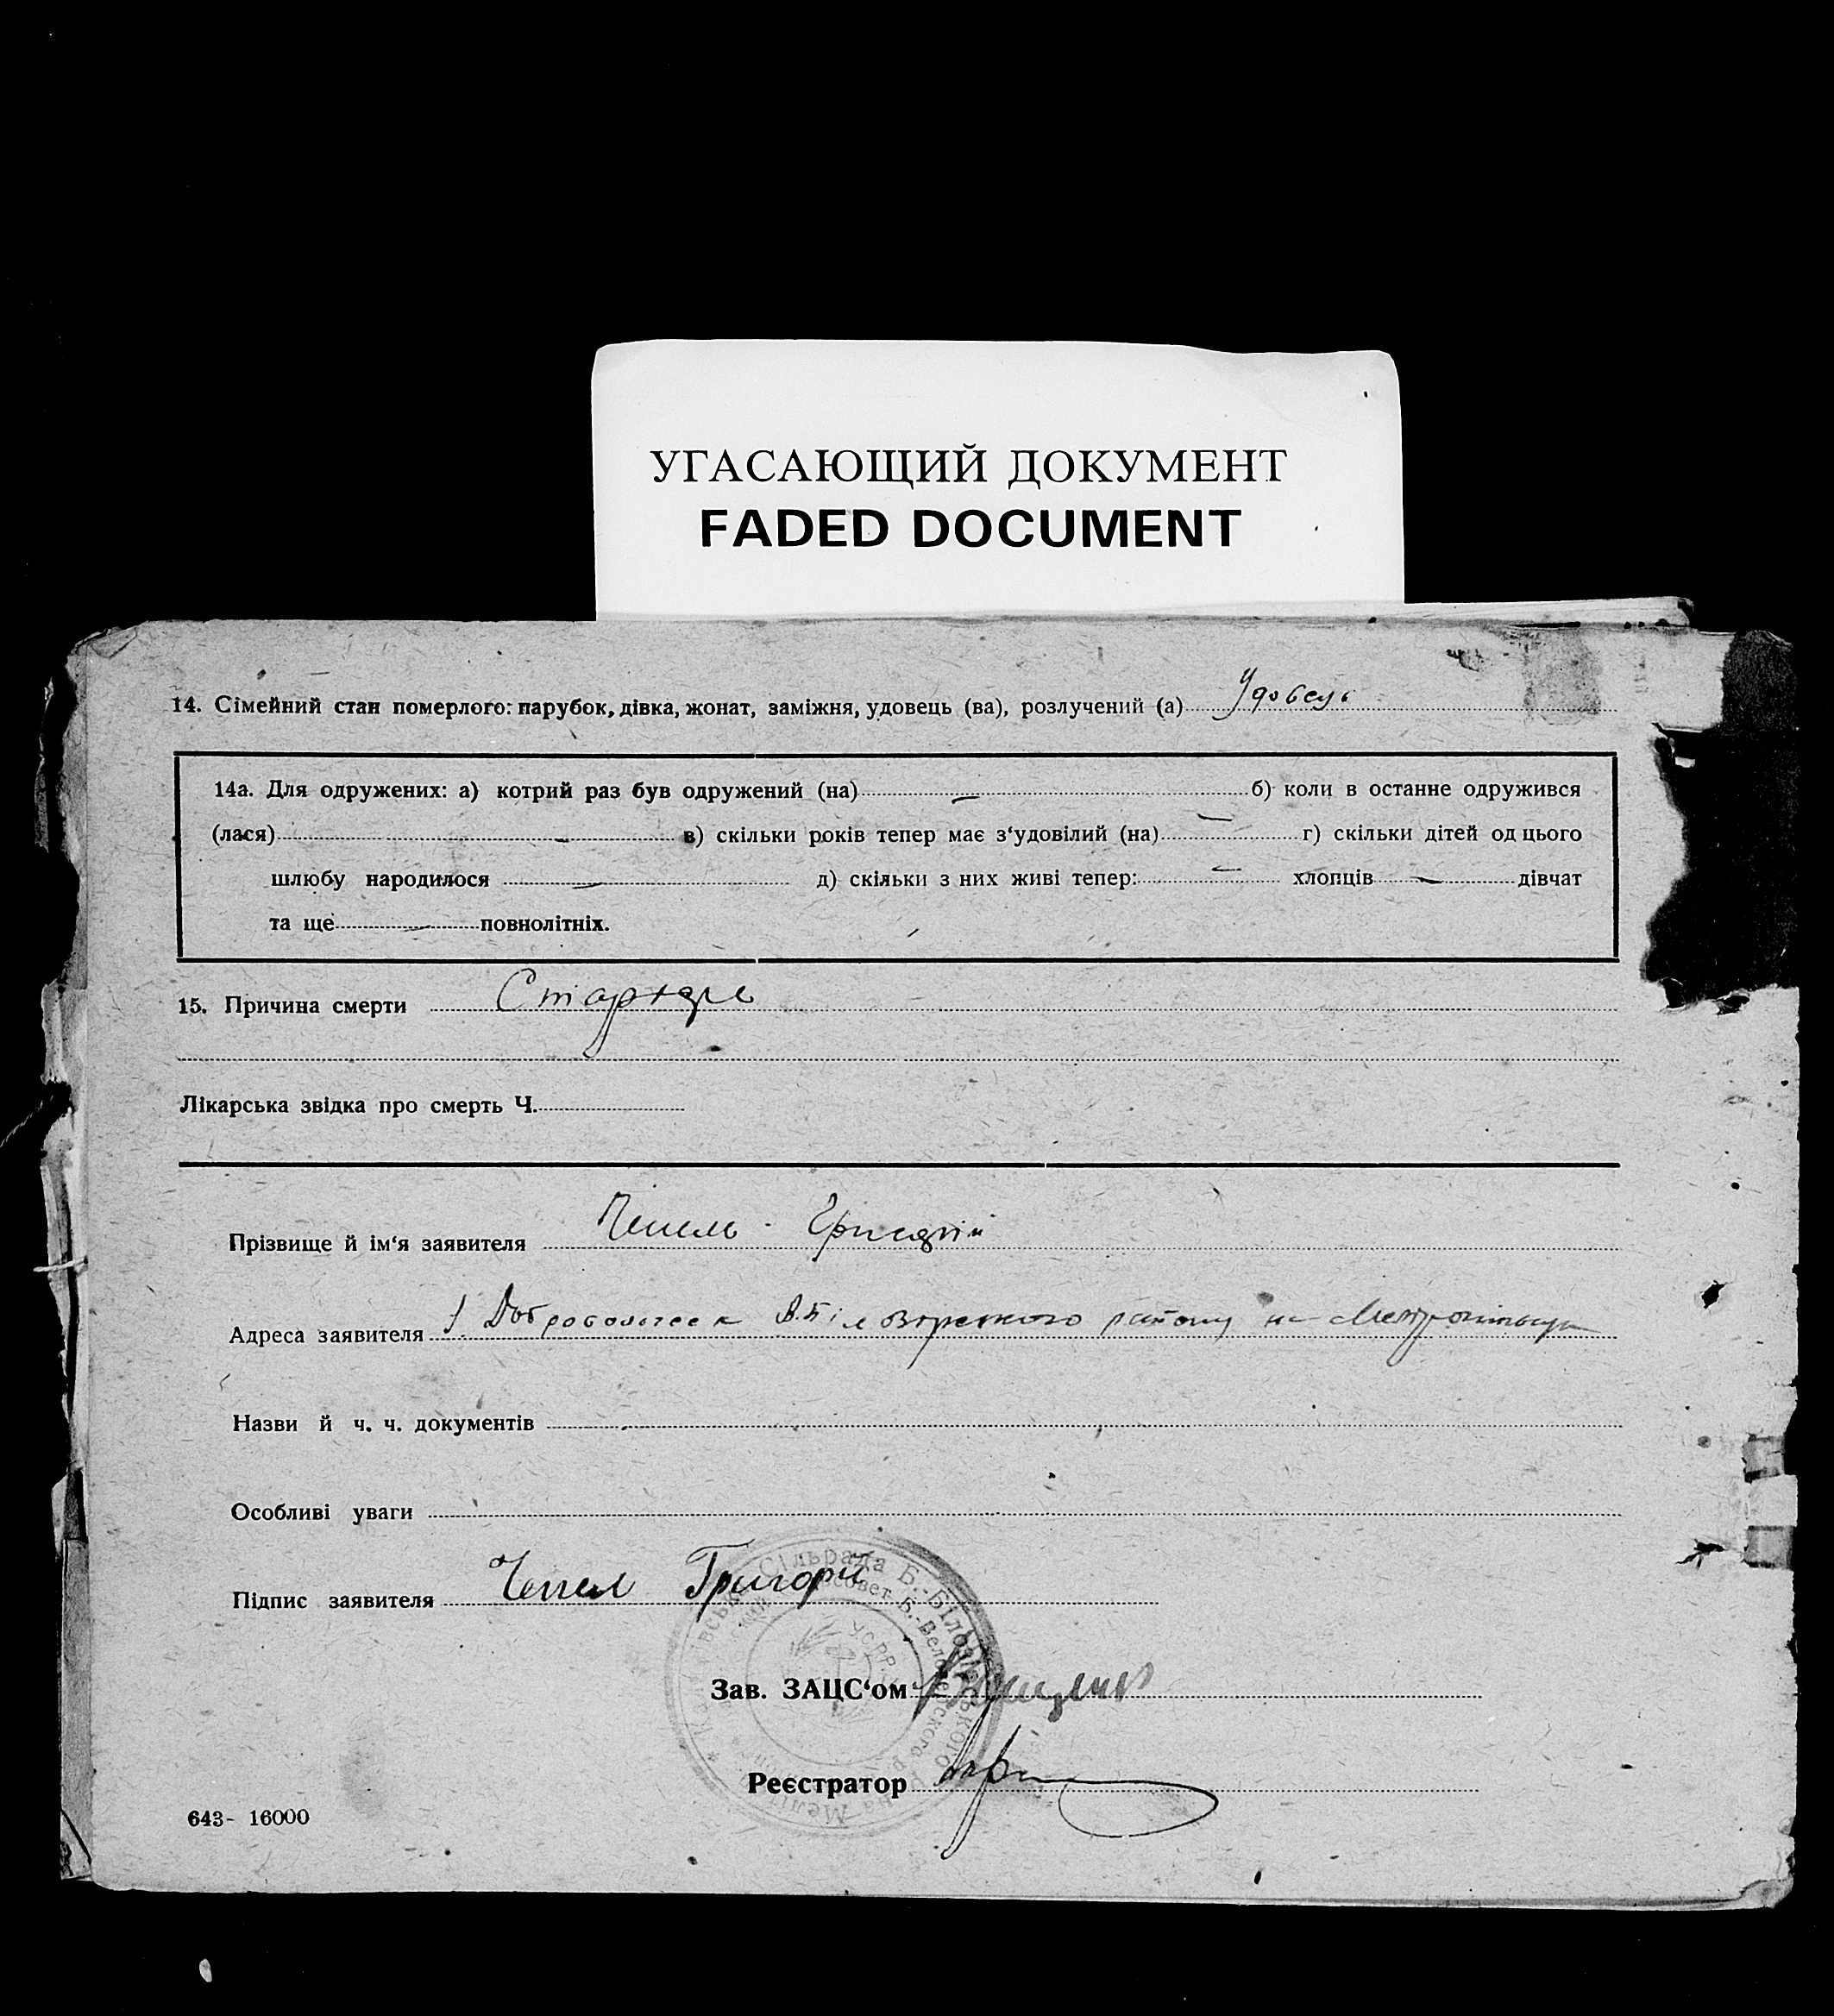 УГАСАЮЩИЙ ДОКУМЕНТ
FADED DOCUMENT
14. Сімейний стан померлого: парубок, дівка, жонат, заміжня, удовець (ва), розлучений (а) Удовець
14а. Для одружених: а) котрий раз був одружений (на) — б) коли в останне одружився
(лася) — в) скільки років тепер має з‘удовілий (на) — г) скільки дітей од цього
шлюбу народилося — д) скільки з них живі тепер: — хлопців — дівчат
та ще — повнолітніх.
15. Причина смерти
Лікарська звідка про смерть Ч.
Прізвище й ім‘я заявителя Чепель Григорій
Адреса заявителя району на Мелітопільщ
Назви й ч. ч. документів
Особливі уваги
Підпис заявителя Чепел Григорій
Сільрада Б.-Білозірського
УСРР
Зав. ЗАЦС‘ом
Реєстратор
643- 16000